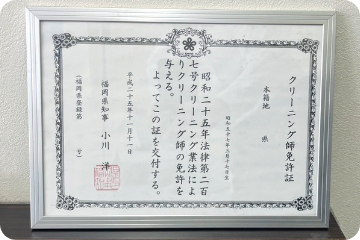 クリーニング師免許証
本籍地　　　県
昭和五十七年三月十七日生
昭和二十五年法律第二百
七号クリーニング業法によ
りクリーニング師の免許を
与える。
よってこの証を交付する。
平成二十五年十一月十一日
福岡県知事　小川　洋
（福岡県登録第　　　号）